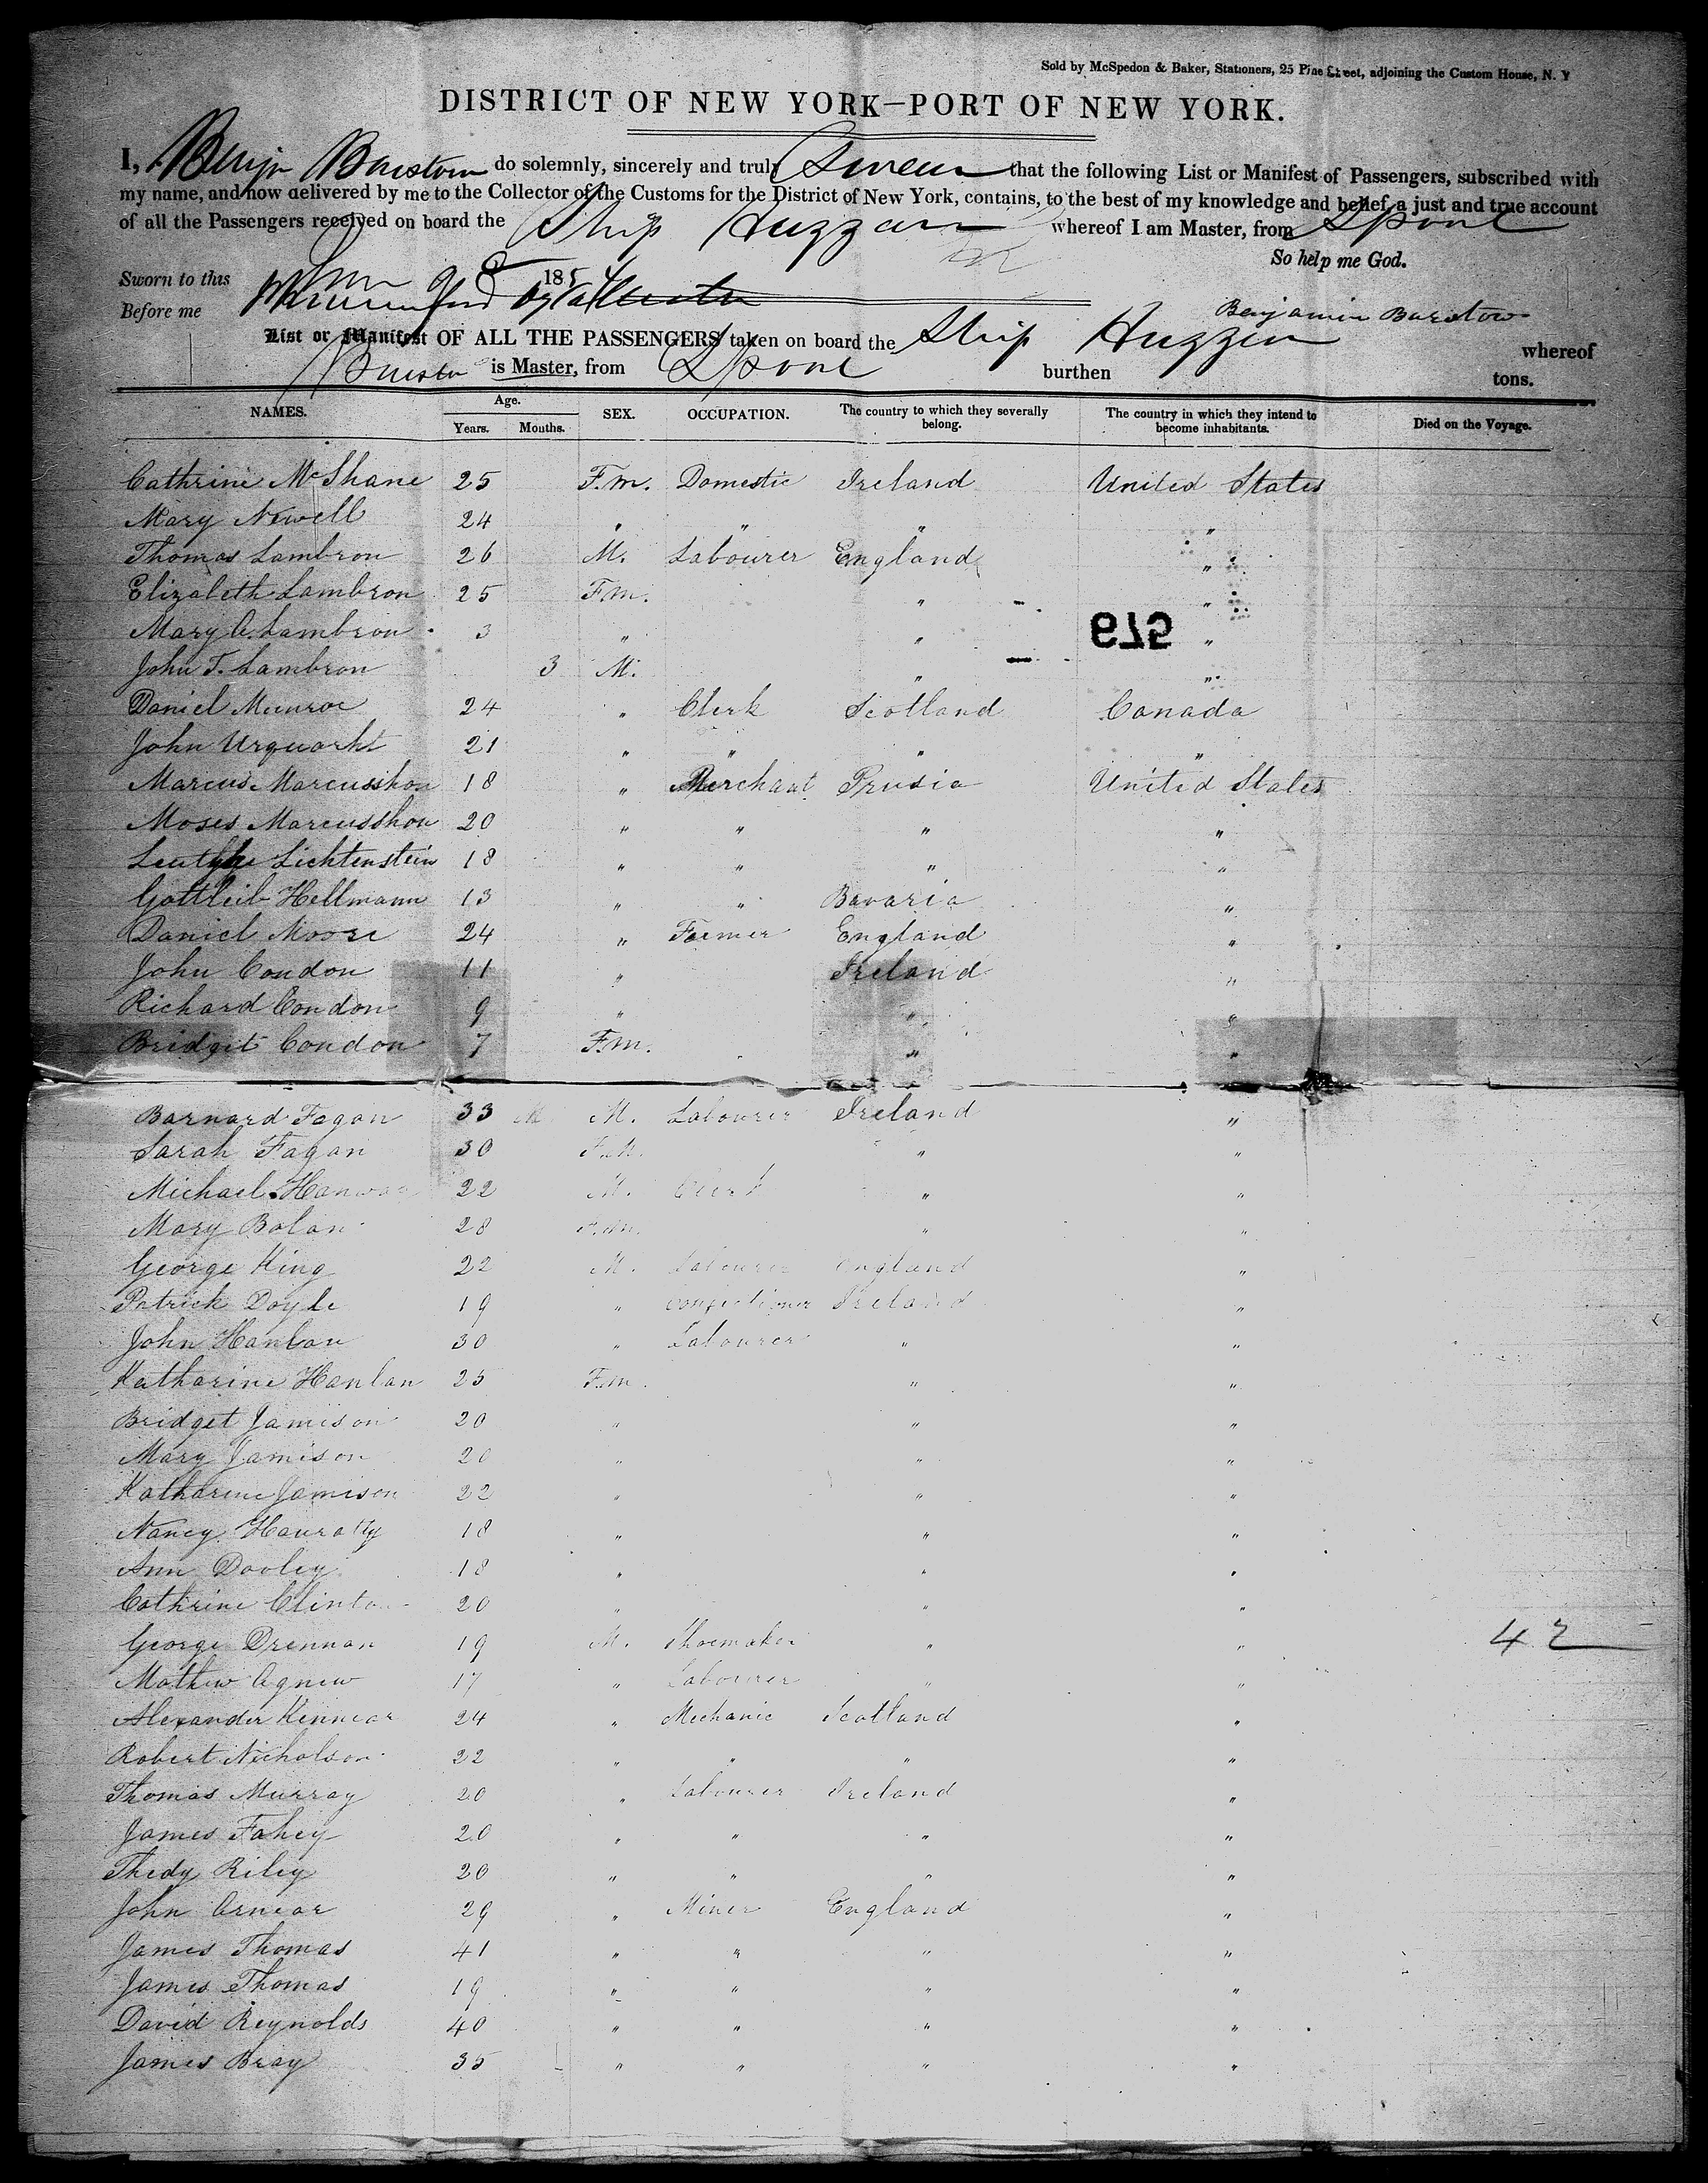 Sold by McSpedon & Baker, Stationers, 25 Pine Street, adjoining the Custom House, N. Y
DISTRICT OF NEW YORK—PORT OF NEW YORK.
I, Benjn Barstow do solemnly, sincerely and truly Swear that the following List or Manifest of Passengers, subscribed with
my name, and now delivered by me to the Collector of the Customs for the District of New York, contains, to the best of my knowledge and belief, a just and true account
of all the Passengers received on board the Ship Huzzar whereof I am Master, from Lpool
So help me God.
Sworn to this 185
Before me
Benjamin Barstow
List or Manifest OF ALL THE PASSENGERS taken on board the Ship Huzzar whereof
Barstow is Master, from Lpool burthen tons.
NAMES. Age. Years. Mouths. SEX. OCCUPATION. The country to which they severally belong. The country in which they intend to become inhabitants. Died on the Voyage.
Cathrine McShane 25 F.m. Domestic Ireland United States
Mary Newell 24 " " " "
Thomas Lambron 26 M. Labourer England "
Elizabeth Lambron 25 F.m. " "
Mary A. Lambron 3 " " "
679
John T. Lambron 3 M. " "
Daniel Munroe 24 " Clerk Scotland Canada
John Urquarht 21 " " " "
Marcus Marcusshon 18 " Merchant Prusia United States
Moses Marcusshon 20 " " " "
Lichtenstein 18 " " " "
Gottleib Hellmann 13 " " Bavaria "
Daniel Moore 24 " Farmer England "
John Condon 11 " Ireland "
Richard Condon 9 " " "
Bridget Condon 7 F.m. " "
Barnard Fagan 33 M. Labourer Ireland "
Sarah Fagan 30 F.m. " "
Michael 22 M. Clerk " "
Mary Bolan 28 F.m. " "
George King 22 M. Labourer England "
Patrick Doyle 19 " Confectioner Ireland "
John Hanlan 30 " Labourer " "
Katharine Hanlan 25 F.m. " "
Bridget Jamison 20 " " "
Mary Jamison 20 " " "
Katharine Jamison 22 " " "
Nancy Hanratty 18 " " "
Ann Dooley 18 " " "
Cathrine Clinton 20 " " "
George Drennan 19 M. Shoemaker " " 42
Mathew Agnew 17 " Labourer " "
Alexander Kinnear 24 " Mechanic Scotland "
Robert Nicholson 22 " " " "
Thomas Murray 20 " Labourer Ireland "
James Fahey 20 " " " "
Thedy Riley 20 " " " "
John 29 " Miner England "
James Thomas 41 " " " "
James Thomas 19 " " " "
David Reynolds 40 " " " "
James Bray 35 " " " "